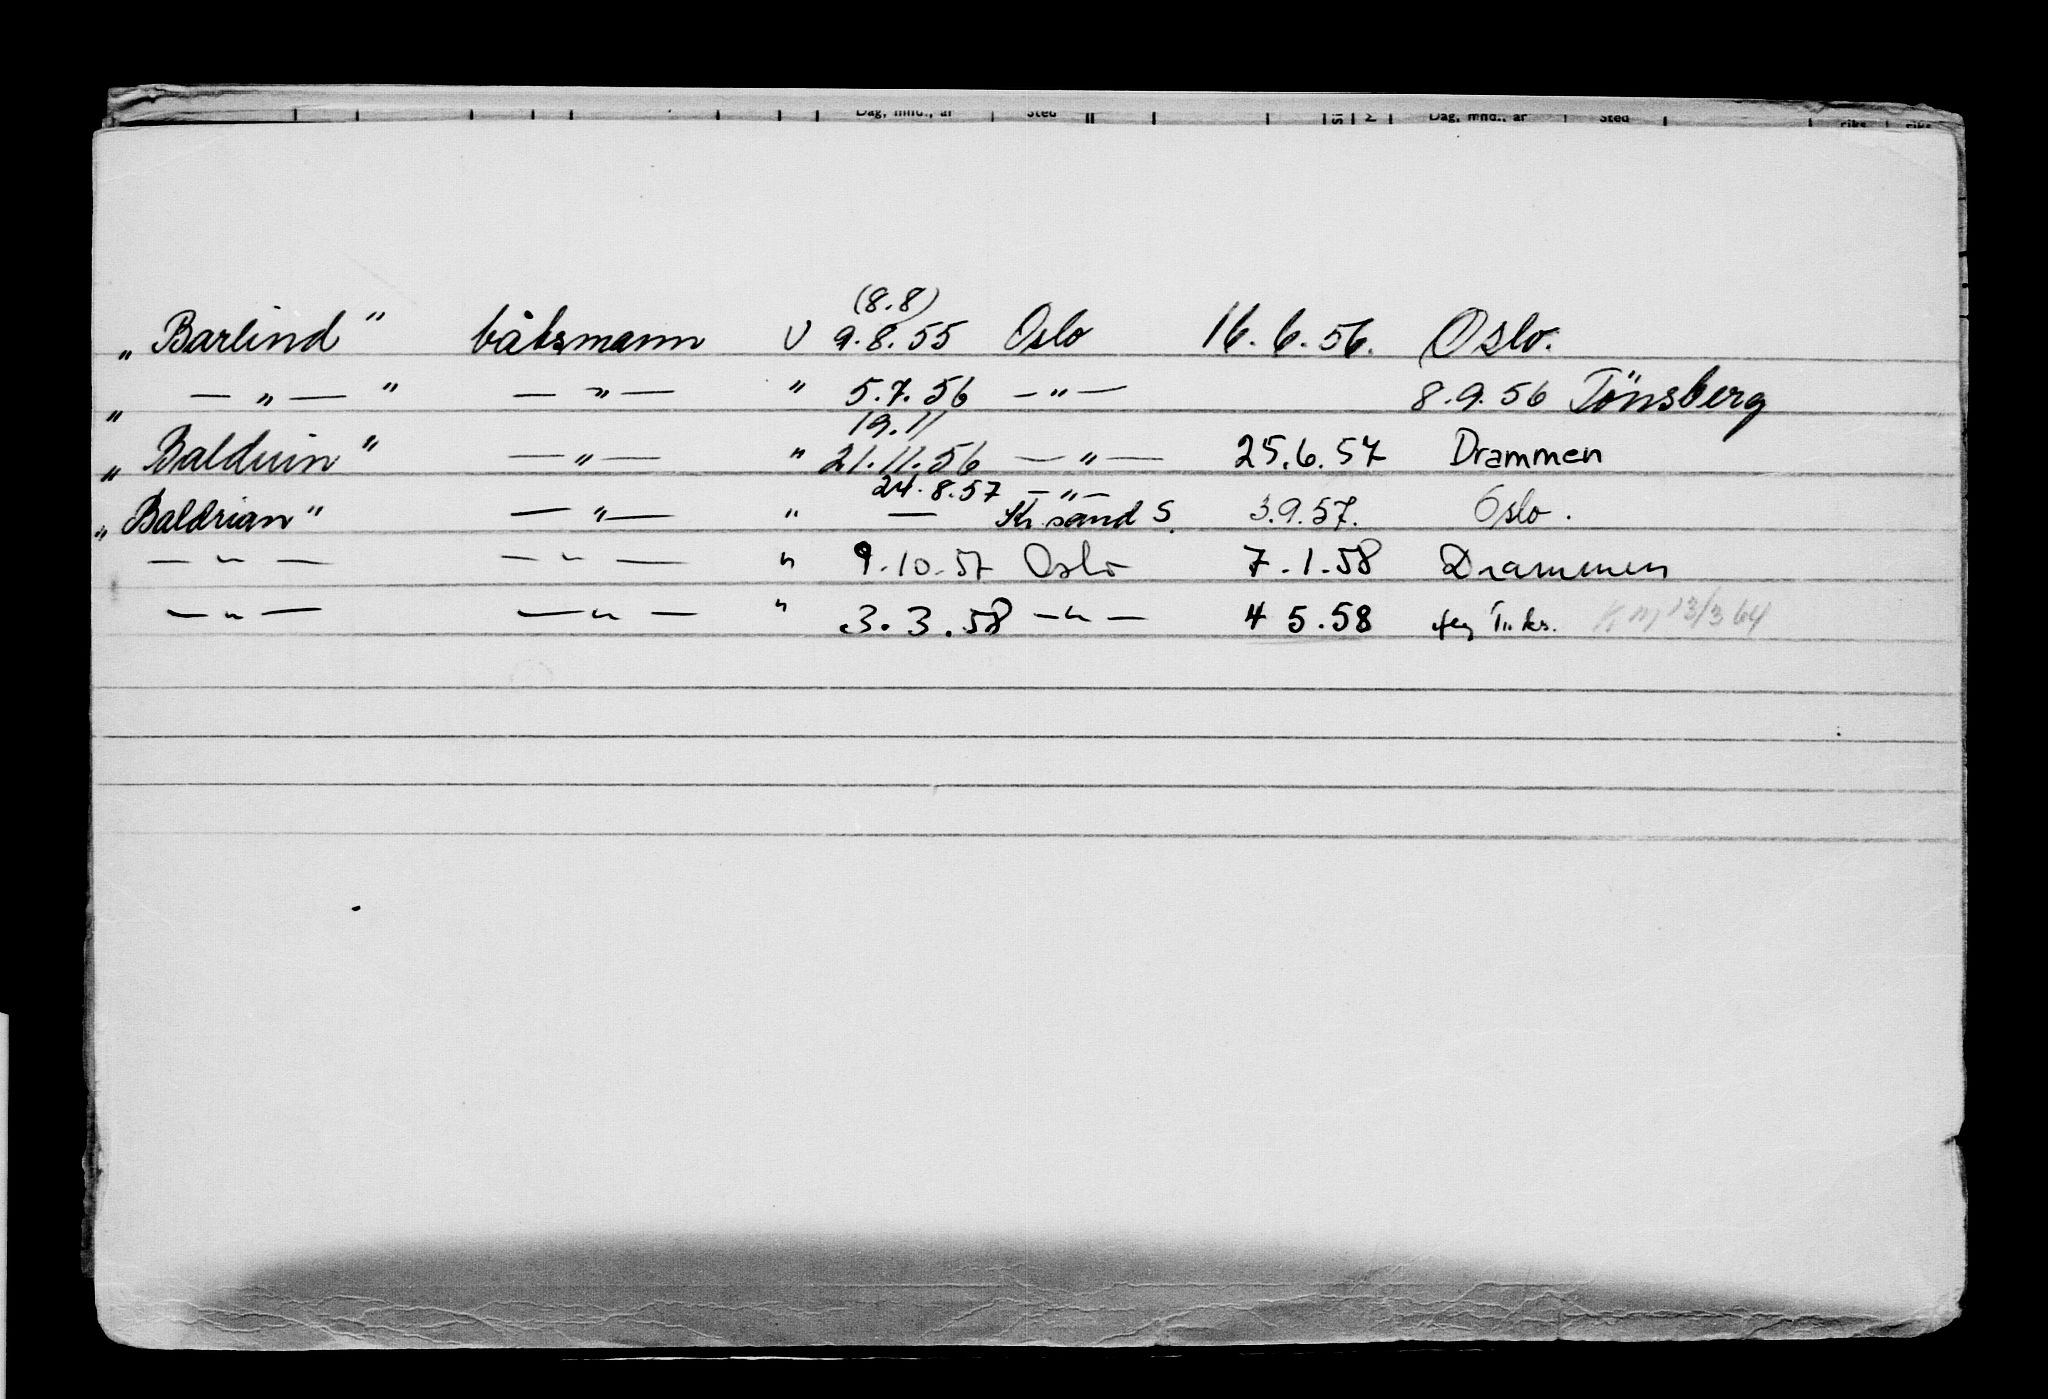 Dag, mnd., år Sted Dag, mnd., år Sted riks riks
(8.8)
„Barlind" båtsmann U 9.8.55 Oslo 16.6.56. Oslo.
„ — „ — " — „ — " 5.7.56 — „ — 8.9.56 Tönsberg
19.11
„Balduin" — „ — " 21.11.56 — „ — 25.6.57 Drammen
24.8.57 — „ —
„Baldrian" — „ — " — Kr.sand S. 3.9.57. Oslo.
— " — — " — " 9.10.57 Oslo 7.1.58 Drammen
— " — — " — " 3.3.58 — " — 4 5.58 13/3 64